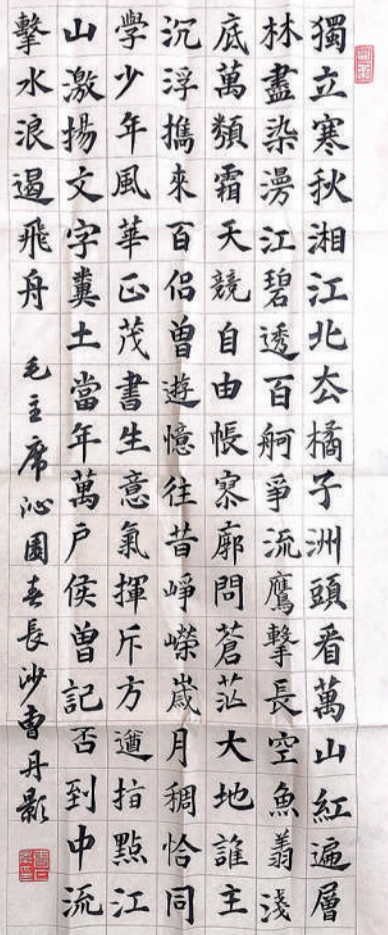 獨立寒秋湘江北去橘子洲頭看萬山紅遍層
林盡染漫江碧透百舸爭流鷹擊長空魚翔淺
底萬類霜天競自由悵寥廓問蒼茫大地誰主
沉浮攜來百侶曾遊憶往昔崢嶸歲月稠恰同
學少年風華正茂書生意氣揮斥方遒指點江
山激揚文字糞土當年萬戶侯曾記否到中流
擊水浪遏飛舟 毛主席沁園春長沙曹丹影